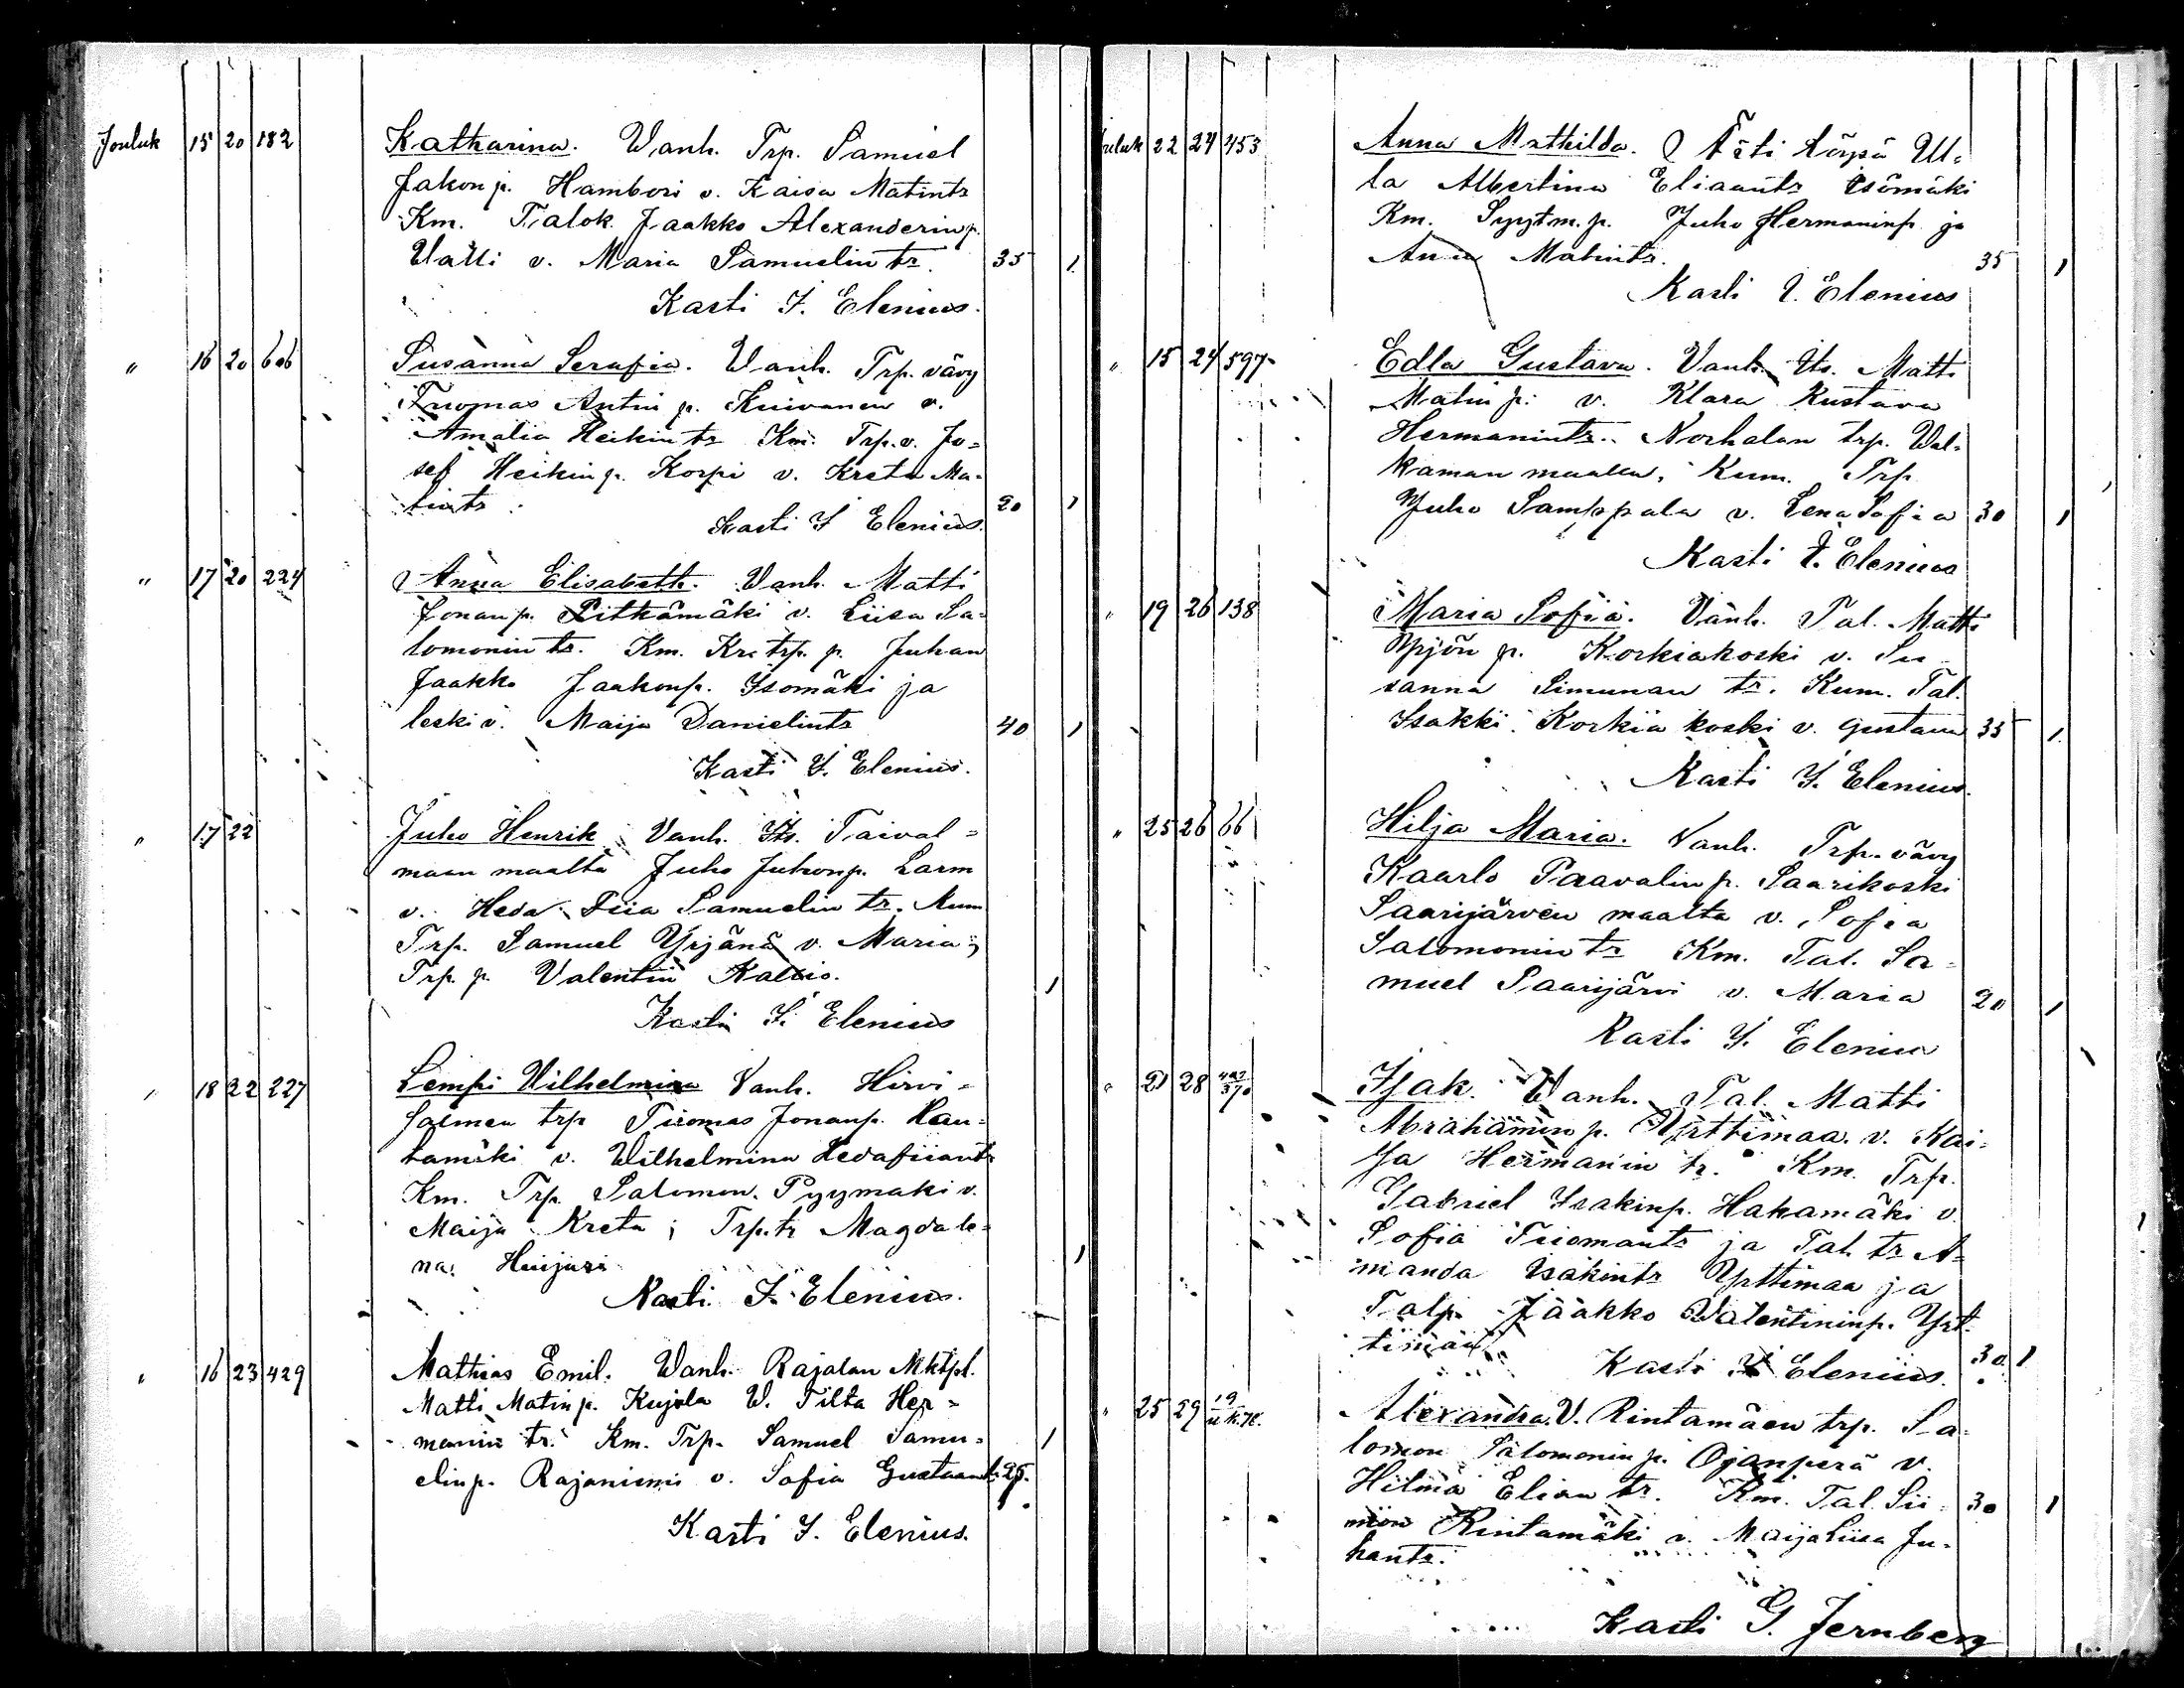 Jouluk 15 20 182 Katharina. Vanh. Trp. Samuel
Jakonp. Hambori v. Kaisa Matintr
Km. Talok. Jaakko Alexanderinp.
Valli v. Maria Samuelintr. 35 1
Kasti I. Elenius.
" 16 20 606 Susanna Serafia. Vanh. Trp. vävy
Tuomas Antin p. Kuivanen v.
Amalia Heikintr Km. Trp. v. Jo=
sef Heikinp. Korpi v. Kreta Ma=
tintr 20 1
Kasti I Elenius.
" 17 20 224 Anna Elisabeth. Vanh. Matti
Jonanp. Pitkämäki v. Liisa Sa=
lomonintr. Km. Kr. trp. p. Juhan
Jaakko Jaakonp. Isomäki ja
leski v. Maija Danielintr 40 1
Kasti I. Elenius.
" 17 22 Juho Henrik Vanh. Its. Taival=
maan maalta Juho Juhonp. Larm
v. Heda Fiia Samuelin tr. Kum
Trp. Samuel Yrjänä v. Maria;
Trp. p. Valentin Kallio. 1
Kasti I. Elenius
" 18 22 227 Lempi Vilhelmina Vanh. Hirvi=
salmen trp Tuomas Jonanp. Rau=
tamäki v. Vilhelmina Hedafiiantr
Km. Trp. Salomon Pyymäki v.
Maija Kreta; Trp. tr Magdale=
na Huijuri 1
Kasti I. Elenius.
" 16 23 429 Mathias Emil. Vanh. Rajalan Mktpl.
Matti Matinp. Kujala V. Tilta Her=
manin tr. Km. Trp. Samuel Samu= 1
elinp. Rajaniemi v. Sofia Gustaantr 25.
Kasti I. Elenius.
Jouluk 22 24 453 Anna Mathilda. Äiti
la Albertina Eliaantr Isömäki
Km. Syytm. p. Juho Hermaninp ja
Anna Matintr. 35 1
Kasti I. Elenius
" 15 24 597 Edla Gustava. Vanh. Its. Matti
Matin p. v. Klara Kustava
Hermanintr. Norhalan trp. Val=
kaman maalla, Kum. Trp
Juho Samppala v. Lena Sofia 30 1
Kasti I. Elenius
" 19 26 138 Maria Sofia. Vanh. Tal. Matti
Yrjön p. Korkiakoski v. Su
sanna Simunan tr. Kum. Tal.
Isakki Korkiakoski v. Gustava 35 1.
Kasti I. Elenius.
" 25 26 66 Hilja Maria. Vanh. Trp. vävy
Kaarlo Paavalinp. Saarikoski
Saarijärven maalta v. Sofia
Salomonintr Km. Tal. Sa=
muel Saarijärvi v. Maria 20 1
Kasti I. Elenius
" 21 28 Isak. Vanh. Tal. Matti
Abrahamin p. Yrttimaa v. Kai=
sa Hermanin tr. Km. Trp.
Gabriel Isakinp. Hakamäki v.
Sofia Tuomantr ja Tal. tr A=
manda Isakintr Yrttimaa ja
Talp. Jaakko Valentininp. Yrt=
timaa 30 1
Kasti I Elenius.
" 25 29 Alexandra. V. Rintamäen trp. Sa=
lomon Salomonin p. Ojanperä v.
Hilma Elian tr. Km. Tal. Sii= 30 1
mon Rintamäki v. Maija Liisa Ju=
hantr.
Kasti G. Jernberg